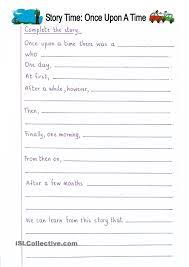 Story Time: Once Upon A Time
Complete the story.
Once upon a time there was a
who
One day,
At first,
After a while, however,
Then,
Finally, one morning,
From then on,
After a few months
We can learn from this story that
iSLCollective.com